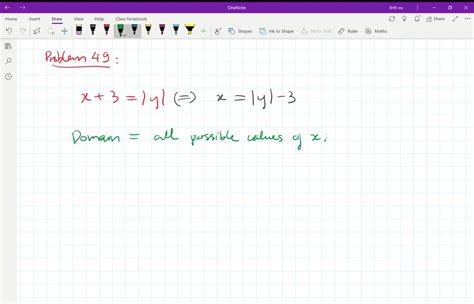 OneNote
linh vu
File Home Insert Draw View Help Class Notebook
Shapes Ink to Shape Ink to Text Ruler Maths
Problem 49:
x + 3 = |y| (=) x = |y| - 3
Domain = all possible values of x;